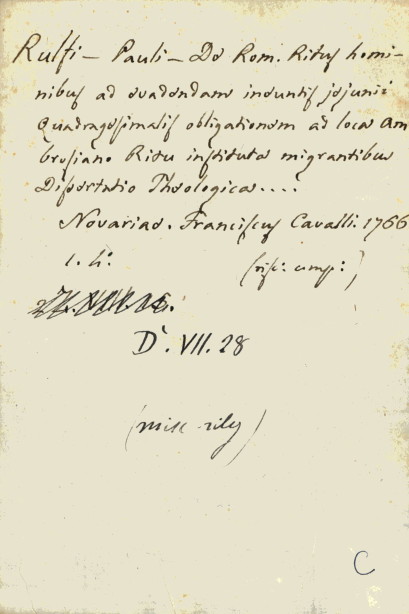 Ruffi — Pauli — De Rom. Ritus homi-
nibus ad evadendam ineuntis jejunii
Quadragesimalis obligationem ad loca Am
brosiano Ritu instituta migrantibus
Dissertatio Theologica....
Novariae. Franciscus Cavalli. 1766
(misc: comp:)
D`. VII. 28
(misc. rileg)
C